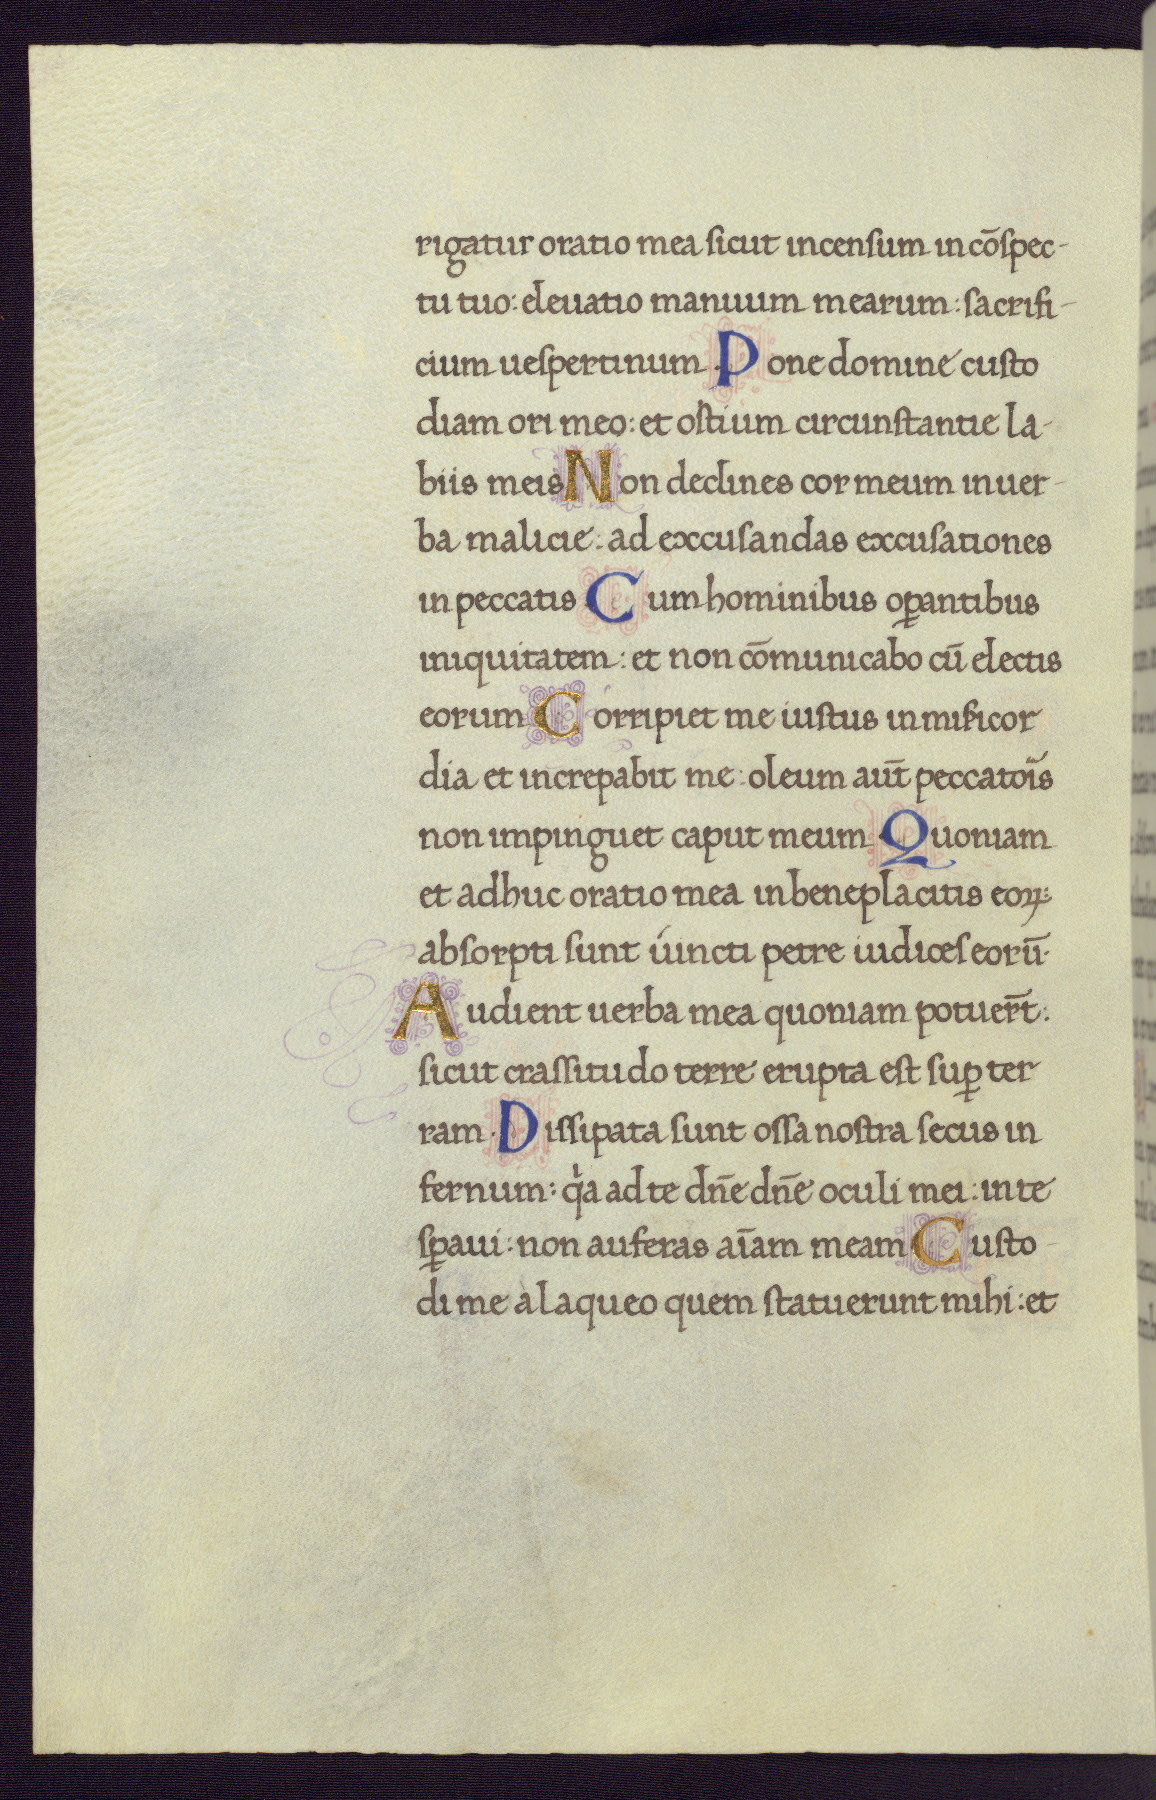 rigatur oratio mea sicut incensum in cōspec-
tu tuo: eleuatio manuum mearum: sacrifi-
cium uespertinum. Pone domine custo
diam ori meo: et ostium circunstantie la-
biis meis Non declines cor meum in uer-
ba malicie: ad excusandas excusationes
in peccatis Cum hominibus oꝑantibus
iniquitatem: et non cōmunicabo cū electis
eorum Corripiet me iustus in mīicor
dia et increpabit me: oleum aūt peccatoīs
non impinguet caput meum Quoniam
et adhuc oratio mea in beneplacitis eoꝝ:
absorpti sunt iuncti petre iudices eorū.
Audient uerba mea quoniam potuer̄t:
sicut crassitudo terre erupta est suꝑ ter
ram. Dissipata sunt ossa nostra secus in
fernum: qͥa ad te dn̄e dn̄e oculi mei: in te
sꝑaui: non auferas aīam meam Custo-
di me a laqueo quem statuerunt mihi: et